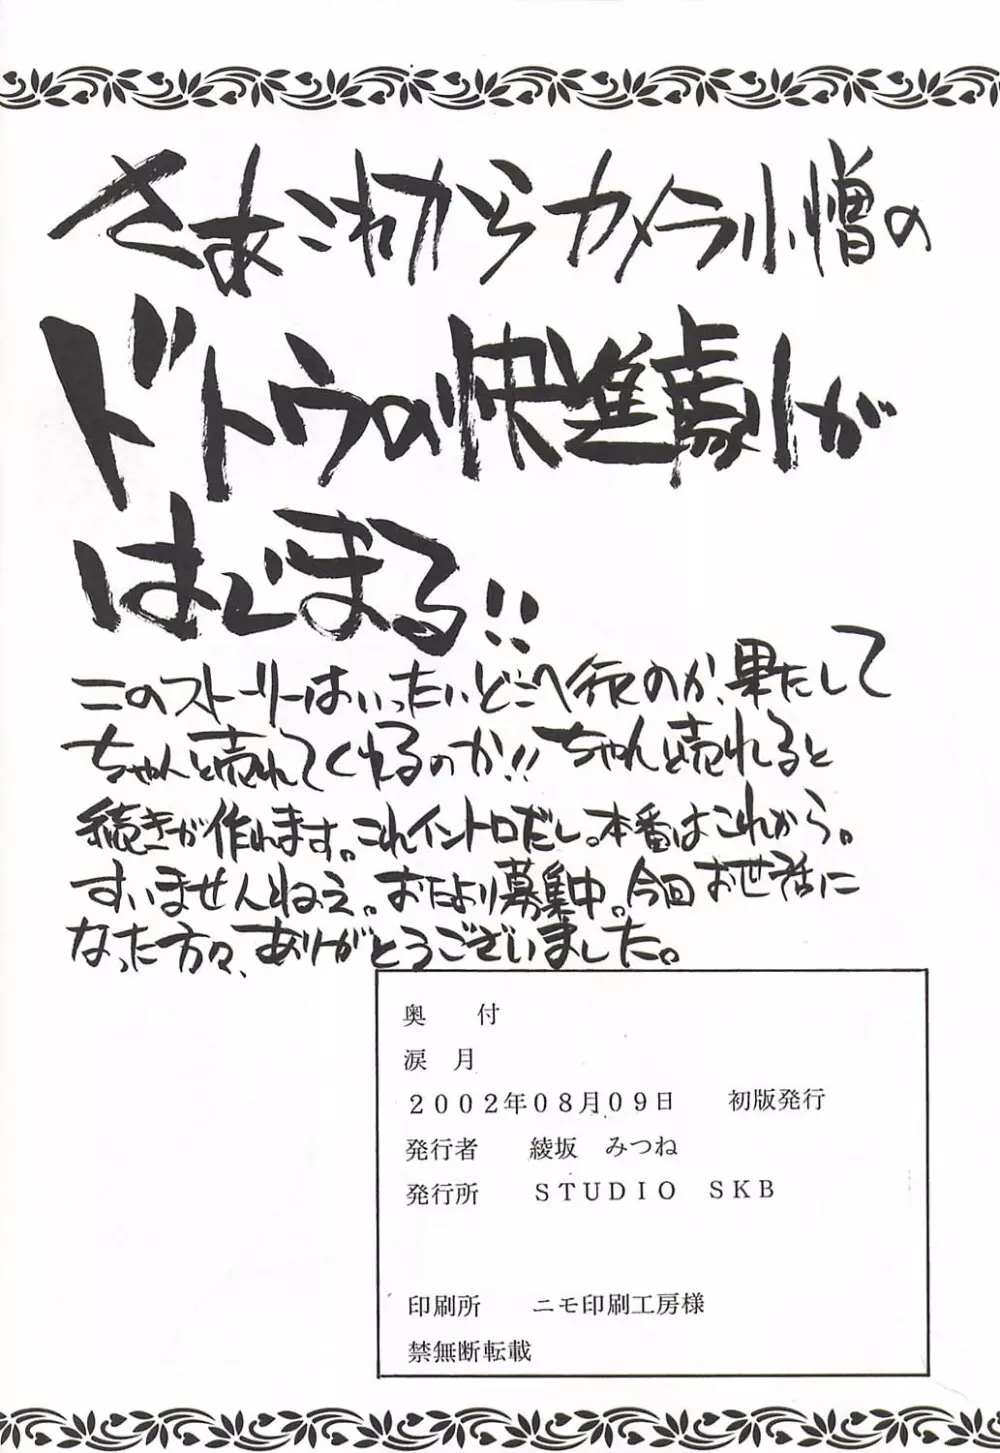 さあこれからカメラ小憎の
ドトウの快進劇が
はじまる!!
このストーリーはいったいどこへ行のか、果たして
ちゃんと売れてくれるのか!! ちゃんと売れると
続きが作れます。これイントロだし。本番はこれから。
すいませんねえ。おたより募集中。今回お世話に
なった方々、ありがとうございました。
奥　付
涙 月
2002年08月09日　初版発行
発行者　綾坂　みつね
発行所　STUDIO SKB
印刷所　ニモ印刷工房様
禁無断転載